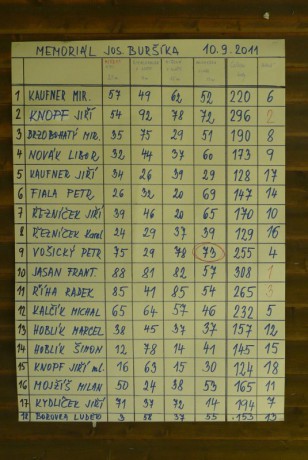 MEMORIÁL JOS. BURŠÍKA 10.9.2011
1 KAUFNER MIR. 57 49 62 52 220 6
2 KNOPF JIŘÍ 54 92 78 72 296 2
3 BRZOBOHATÝ MIR. 35 75 29 51 190 8
4 NOVÁK LIBOR 32 44 37 60 173 9
5 KAUFNER JIŘÍ 34 26 39 29 128 17
6 FIALA PETR 26 32 20 69 147 14
7 ŘEZNÍČEK JIŘÍ 39 46 20 65 170 10
8 ŘEZNÍČEK Karel 24 29 37 39 129 16
9 VOŠICKÝ PETR 75 29 78 73 255 4
10 JASAN FRANT. 88 81 82 57 308 1
11 ŘÍHA RADEK 85 41 85 54 265 3
12 KALČÍK MICHAL 65 64 57 46 232 5
13 HOBLÍK MARCEL 38 45 37 37 157 12
14 HOBLÍK ŠIMON 12 78 14 41 145 15
15 KNOPF JIŘÍ ml. 16 63 15 30 124 18
16 MOJŽÍŠ MILAN 50 24 38 53 165 11
17 KYDLÍČEK JIŘÍ 71 37 72 14 194 7
18 BOROVKA LUDĚK 3 58 37 55 153 13